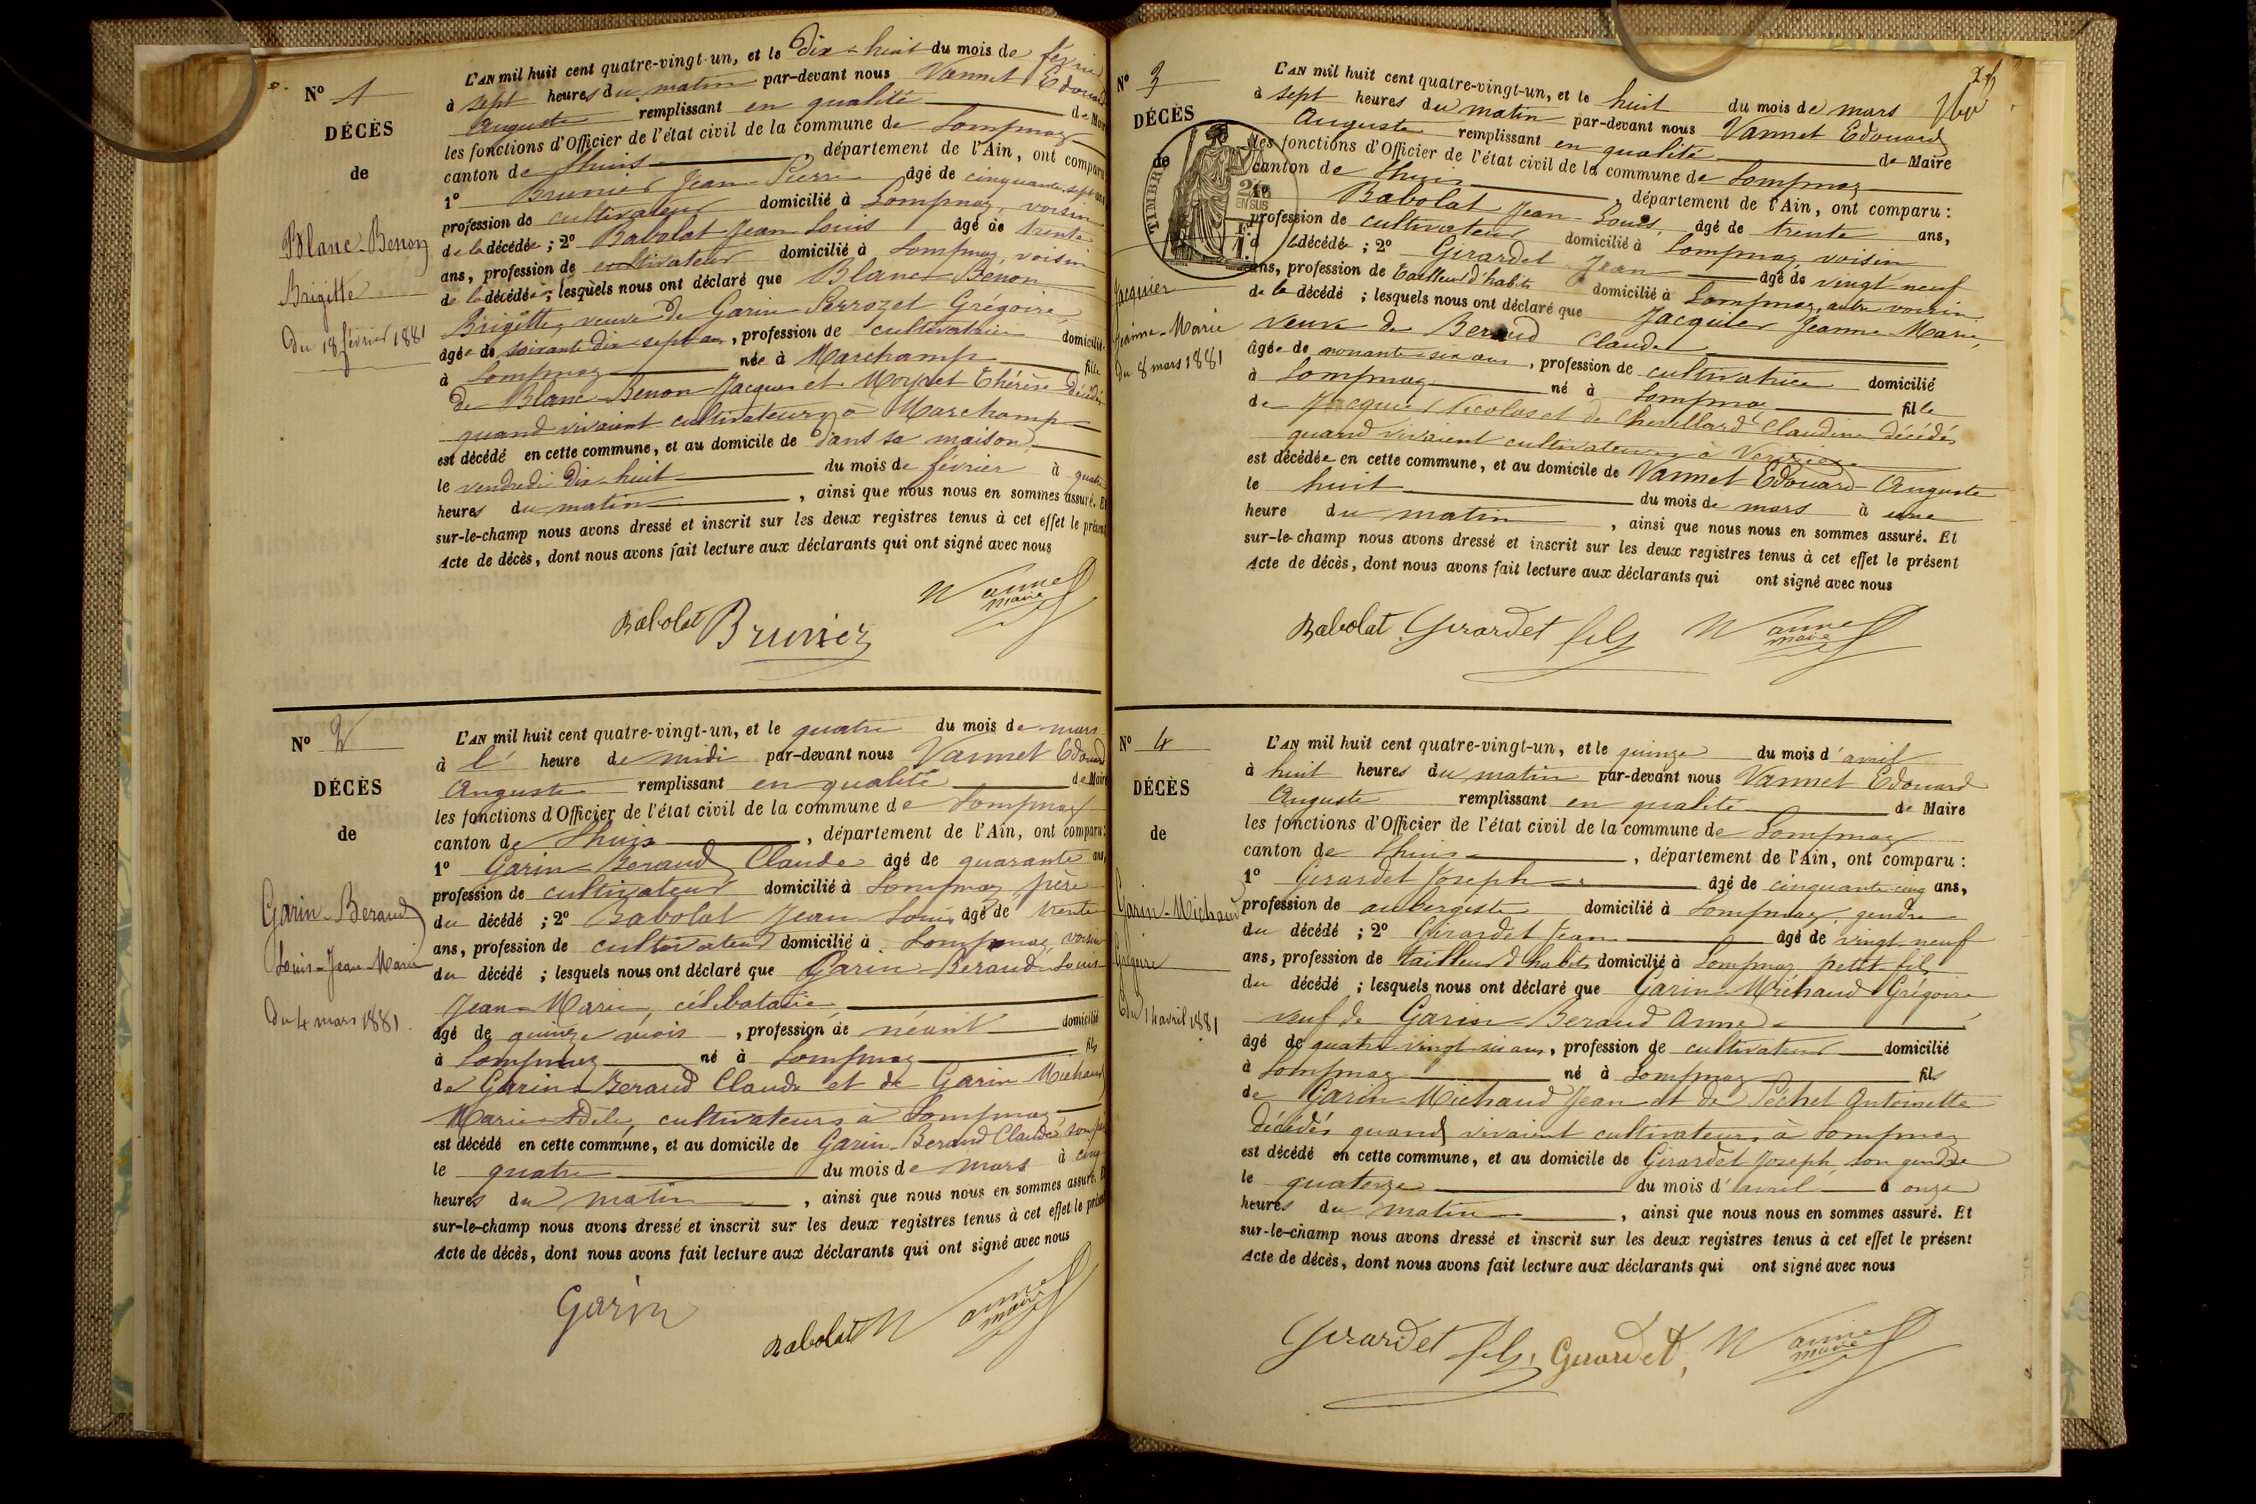 N° 1
DÉCÈS
de
Blanc-Benon
Brigitte
Du 18 février 1881
L'AN mil huit cent quatre-vingt-un, et le dix-huit du mois de février
à sept heures du matin par-devant nous Vannet Edouard
Auguste remplissant en qualité de Maire
les fonctions d'Officier de l'état civil de la commune de Lompnaz
canton de Lhuis département de l'Ain, ont comparu
1° Brunier Jean-Pierre âgé de cinquante-sept ans
profession de cultivateur domicilié à Lompnaz, voisin
de la décédée ; 2° Babolat Jean Louis âgé de trente
ans, profession de cultivateur domicilié à Lompnaz, voisin
de la décédée ; lesquels nous ont déclaré que Blanc Benon
Brigitte, veuve de Garin Perrozet Grégoire,
âgée de soixante dix-sept ans, profession de cultivatrice domiciliée
à Lompnaz née à Marchamp fille
de Blanc-Benon Jacques et Moynet Thérèse décédés
quand vivaient cultivateurs à Marchamp
est décédé en cette commune, et au domicile de dans sa maison,
le vendredi dix-huit du mois de février à quatre
heures du matin, ainsi que nous nous en sommes assuré. Et
sur-le-champ nous avons dressé et inscrit sur les deux registres tenus à cet effet le présent
Acte de décès, dont nous avons fait lecture aux déclarants qui ont signé avec nous
Babolat Brunier Vannet
maire
N° 2
DÉCÈS
de
Garin-Beraud
Louis-Jean-Marie
Du 4 mars 1881.
L'AN mil huit cent quatre-vingt-un, et le quatre du mois de mars
à l' heure de midi par-devant nous Vannet Edouard
Auguste remplissant en qualité de Maire
les fonctions d'Officier de l'état civil de la commune de Lompnaz
canton de Lhuis, département de l'Ain, ont comparu :
1° Garin-Beraud Claude âgé de quarante ans,
profession de cultivateur domicilié à Lompnaz père
du décédé ; 2° Babolat Jean Louis âgé de trente
ans, profession de cultivateur domicilié à Lompnaz, voisin
du décédé ; lesquels nous ont déclaré que Garin-Beraud Louis
Jean-Marie, célibataire,
âgé de quinze mois, profession de néant domicilié
à Lompnaz né à Lompnaz fils
de Garin-Beraud Claude et de Garin Michaud
Marie Adèle, cultivateurs à Lompnaz
est décédé en cette commune, et au domicile de Garin-Beraud Claude son père
le quatre du mois de mars à cinq
heures du matin, ainsi que nous nous en sommes assuré. Et
sur-le-champ nous avons dressé et inscrit sur les deux registres tenus à cet effet le présent
Acte de décès, dont nous avons fait lecture aux déclarants qui ont signé avec nous
Garin Babolat Vannet
maire
N° 3
DÉCÈS
de
TIMBRE
Jacquier
Jeanne-Marie
Du 8 mars 1881
L'AN mil huit cent quatre-vingt-un, et le huit du mois de mars
à sept heures du matin par-devant nous Vannet Edouard
Auguste remplissant en qualité de Maire
les fonctions d'Officier de l'état civil de la commune de Lompnaz
canton de Lhuis département de l'Ain, ont comparu :
1° Babolat Jean-Louis, âgé de trente ans,
profession de cultivateur domicilié à Lompnaz, voisin
de la décédée ; 2° Girardet Jean âgé de vingt neuf
ans, profession de tailleur d'habits domicilié à Lompnaz, autre voisin
de la décédé ; lesquels nous ont déclaré que Jacquier Jeanne-Marie,
veuve de Beraud Claude
âgée de nonante-six ans, profession de cultivatrice domicilié
à Lompnaz né à Lompnaz fille
de Jacquier Nicolas et de Chevillard Claudine décédés
quand vivaient cultivateurs à
est décédée en cette commune, et au domicile de Vannet Edouard-Auguste
le huit du mois de mars à une
heure du matin, ainsi que nous nous en sommes assuré. Et
sur-le-champ nous avons dressé et inscrit sur les deux registres tenus à cet effet le présent
Acte de décès, dont nous avons fait lecture aux déclarants qui ont signé avec nous
Babolat Girardet fils Vannet
maire
N° 4
DÉCÈS
de
Garin-Michaud
Grégoire
Du 14 avril 1881
L'AN mil huit cent quatre-vingt-un, et le quinze du mois d'avril
à huit heures du matin par-devant nous Vannet Edouard
Auguste remplissant en qualité de Maire
les fonctions d'Officier de l'état civil de la commune de Lompnaz
canton de Lhuis, département de l'Ain, ont comparu :
1° Girardet Joseph âgé de cinquante-cinq ans,
profession de aubergiste domicilié à Lompnaz, gendre
du décédé ; 2° Girardet Jean âgé de vingt-neuf
ans, profession de tailleur d'habits domicilié à Lompnaz petit-fils
du décédé ; lesquels nous ont déclaré que Garin-Michaud Grégoire
veuf de Garin-Beraud Anne,
âgé de quatre-vingt-six ans, profession de cultivateur domicilié
à Lompnaz né à Lompnaz fils
de Garin-Michaud Jean et de Péchet Antoinette
décédés quand vivaient cultivateurs à Lompnaz
est décédé en cette commune, et au domicile de Girardet Joseph, son gendre
le quatorze du mois d'avril à onze
heures du matin, ainsi que nous nous en sommes assuré. Et
sur-le-champ nous avons dressé et inscrit sur les deux registres tenus à cet effet le présent
Acte de décès, dont nous avons fait lecture aux déclarants qui ont signé avec nous
Girardet fils, Girardet, Vannet
maire